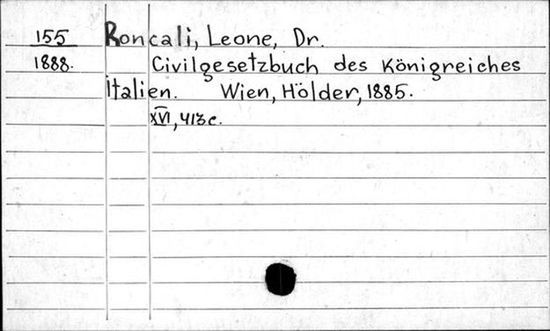 155 Roncali, Leone, Dr.
1888. Civilgesetzbuch des Königreiches
Italien. Wien, Hölder, 1885.
XVI, 413 c.